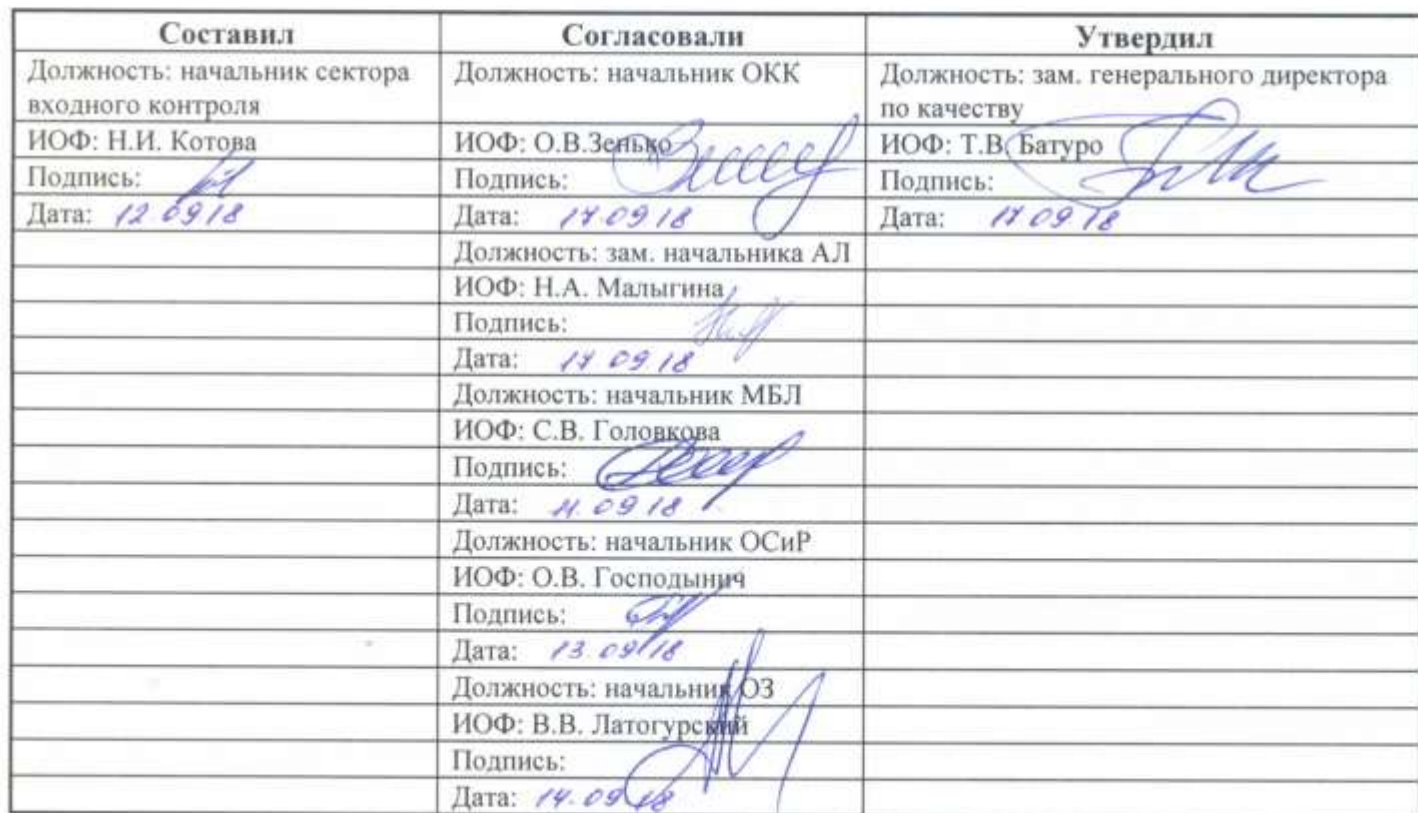 Составил Согласовали Утвердил
Должность: начальник сектора
входного контроля
Должность: начальник ОКК
Должность: зам. генерального директора
по качеству
ИОФ: Н.И. Котова ИОФ: О.В.Зенько ИОФ: Т.В. Батуро
Подпись: Подпись: Подпись:
Дата: 12 09 18 Дата: 17 09 18 Дата: 17 09 18
Должность: зам. начальника АЛ
ИОФ: Н.А. Малыгина
Подпись:
Дата: 17 09 18
Должность: начальник МБЛ
ИОФ: С.В. Головкова
Подпись:
Дата: 09 18
Должность: начальник ОСиР
ИОФ: О.В. Господынич
Подпись:
Дата: 13.09 18
Должность: начальник ОЗ
ИОФ: В.В. Латогурский
Подпись:
Дата: 14.09 18